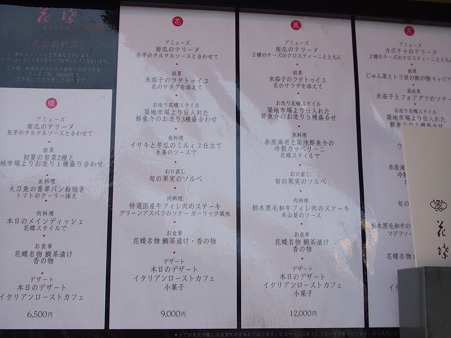 花蝶
蝶
アミューズ
南瓜のテリーヌ
長芋のタルタルソースと合わせて
前菜
初夏の旬菜2種と
築地市場よりお造り1種盛り合わせ
魚料理
太刀魚の香草パン粉焼き
トマトのクーリー添え
肉料理
本日のメインディッシュ
花蝶スタイルで
お食事
花蝶名物 鯛茶漬け
香の物
デザート
本日のデザート
イタリアンローストカフェ
6,500円
花
アミューズ
南瓜のテリーヌ
長芋のタルタルソースと合わせて
前菜
米茄子のラタトゥイユ
花のサラダを添えて
お造り花蝶スタイル
築地市場より仕入れた
鮮魚介のお造り3種盛り
魚料理
イサキと冬瓜のミルフィユ仕立て
生姜のソースで
お口直し
旬の果実のソルベ
肉料理
特選国産牛フィレ肉のステーキ
グリーンアスパラのソテー ガーリック風味
お食事
花蝶名物 鯛茶漬け・香の物
デザート
本日のデザート
イタリアンローストカフェ
小菓子
9,000円
風
アミューズ
南瓜のテリーヌ
2種のチーズのクロスティーニとともに
前菜
米茄子のラタトゥイユ
花のサラダを添えて
お造り花蝶スタイル
築地市場より仕入れた
鮮魚介のお造り5種盛り
魚料理
糸赤海老と築地鮮魚介の
冷製カッペリーニ
花蝶スタイルで
お口直し
旬の果実のソルベ
肉料理
栃木黒毛和牛フィレ肉のステーキ
本山葵のソース
お食事
花蝶名物 鯛茶漬け
香の物
デザート
本日のデザート
イタリアンローストカフェ
小菓子
12,000円
アミューズ
カボチャのテリーヌ
2種のチーズのクロスティーニとともに
前菜
じゅん菜とトリ貝の酢の物 キャビア
米茄子とフォアグラのソテー
お造り花蝶
築地市場より
鮮魚介のお造り
魚料理
冷製カッ
お口直し
旬の果実
肉料理
栃木黒毛和牛
マデラソー
お食事
花蝶名物
香の
デザ
本日の
イタリアンロ
小菓
花蝶